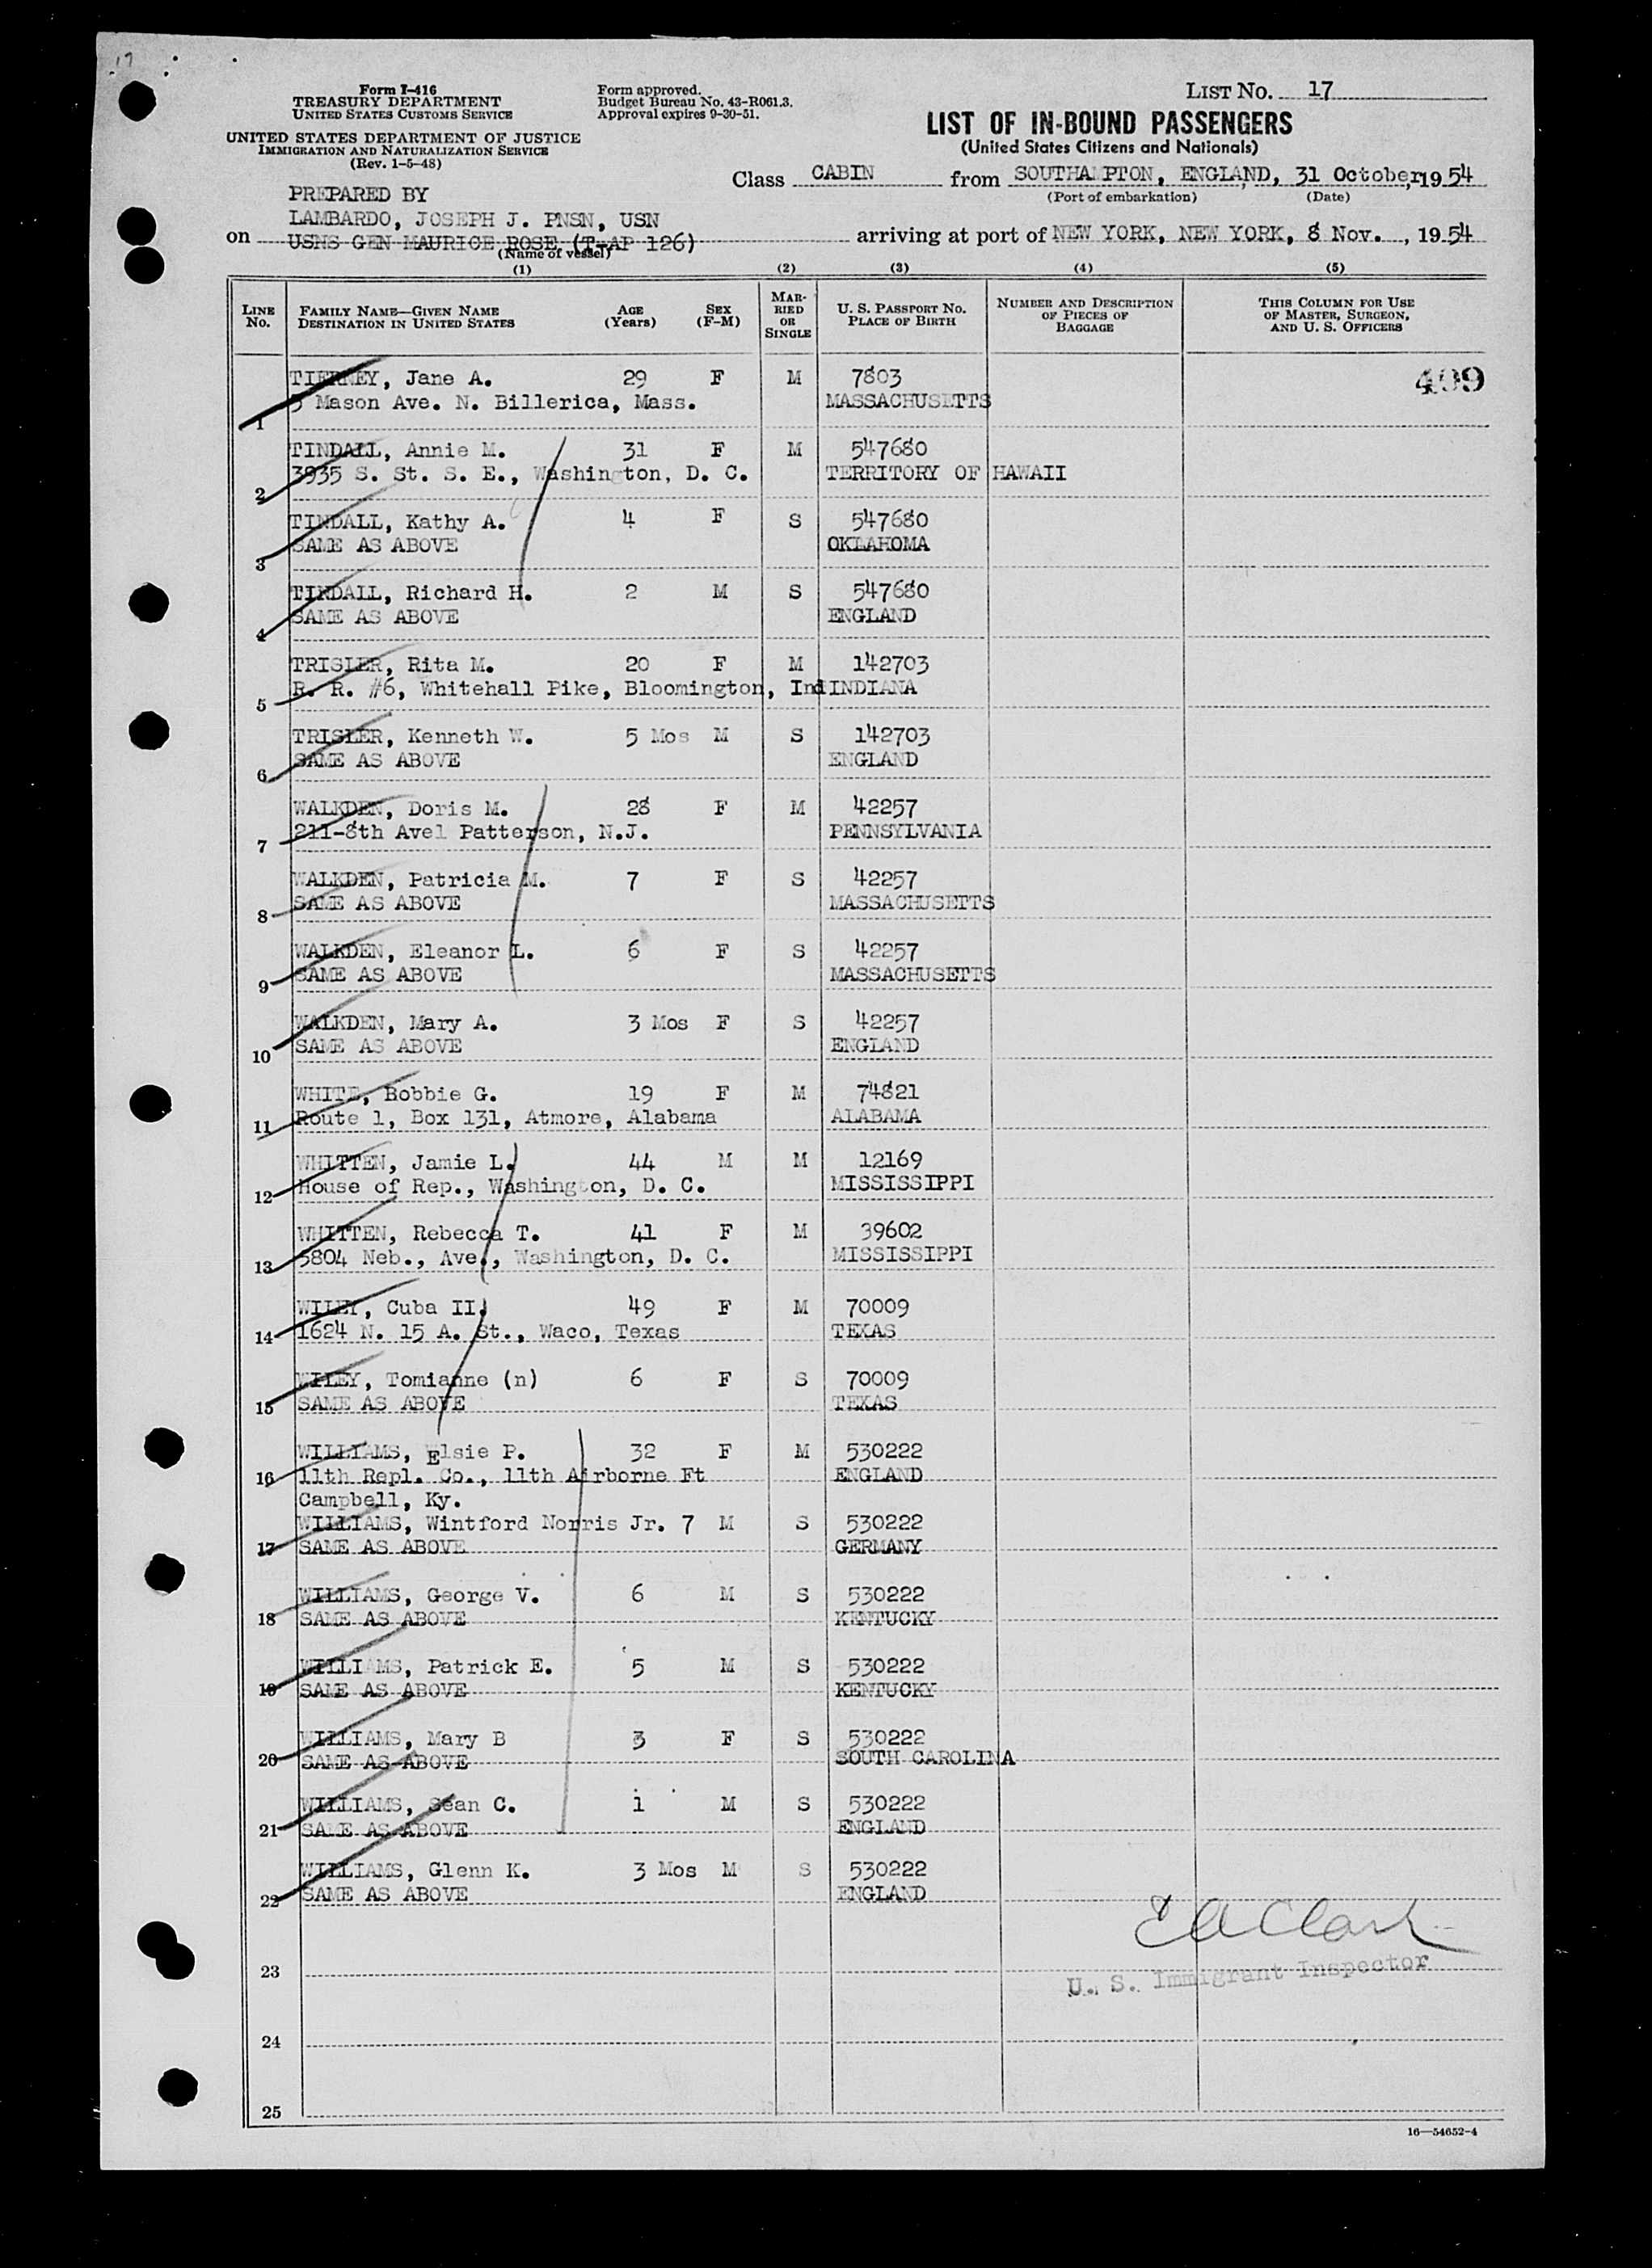 17
Form I-416
TREASURY DEPARTMENT
UNITED STATES CUSTOMS SERVICE
UNITED STATES DEPARTMENT OF JUSTICE
IMMIGRATION AND NATURALIZATION SERVICE
(Rev. 1-5-48)
Form approved.
Budget Bureau No. 43-R061.3.
Approval expires 9-30-51.
LIST NO. 17
LIST OF IN-BOUND PASSENGERS
(United States Citizens and Nationals)
Class CABIN from SOUTHAMPTON, ENGLAND, 31 October, 1954
(Port of embarkation) (Date)
PREPARED BY
LAMBARDO, JOSEPH J. PNSN, USN
on USNS GEN MAURICE ROSE (T-AP 126) arriving at port of NEW YORK, NEW YORK, 8 Nov. , 1954
(Name of vessel)
(1) (2) (3) (4) (5)
LINE No. FAMILY NAME—GIVEN NAME DESTINATION IN UNITED STATES AGE (Years) SEX (F-M) MARRIED OR SINGLE U. S. PASSPORT NO. PLACE OF BIRTH NUMBER AND DESCRIPTION OF PIECES OF BAGGAGE THIS COLUMN FOR USE OF MASTER, SURGEON, AND U. S. OFFICERS
TIERNEY, Jane A. 29 F M 7803 409
1 5 Mason Ave. N. Billerica, Mass. MASSACHUSETTS
TINDALL, Annie M. 31 F M 547680
2 3935 S. St. S. E., Washington, D. C. TERRITORY OF HAWAII
TINDALL, Kathy A. 4 F S 547680
3 SAME AS ABOVE OKLAHOMA
TINDALL, Richard H. 2 M S 547680
4 SAME AS ABOVE ENGLAND
TRISLER, Rita M. 20 F M 142703
5 R. R. #6, Whitehall Pike, Bloomington, Ind INDIANA
TRISLER, Kenneth W. 5 Mos M S 142703
6 SAME AS ABOVE ENGLAND
WALKDEN, Doris M. 28 F M 42257
7 211-8th Avel Patterson, N.J. PENNSYLVANIA
WALKDEN, Patricia M. 7 F S 42257
8 SAME AS ABOVE MASSACHUSETTS
WALKDEN, Eleanor L. 6 F S 42257
9 SAME AS ABOVE MASSACHUSETTS
WALKDEN, Mary A. 3 Mos F S 42257
10 SAME AS ABOVE ENGLAND
WHITE, Bobbie G. 19 F M 74821
11 Route 1, Box 131, Atmore, Alabama ALABAMA
WHITTEN, Jamie L. 44 M M 12169
12 House of Rep., Washington, D. C. MISSISSIPPI
WHITTEN, Rebecca T. 41 F M 39602
13 5804 Neb., Ave., Washington, D. C. MISSISSIPPI
WILEY, Cuba II. 49 F M 70009
14 1624 N. 15 A. St., Waco, Texas TEXAS
WILEY, Tomianne (n) 6 F S 70009
15 SAME AS ABOVE TEXAS
WILLIAMS, Elsie P. 32 F M 530222
16 11th Repl. Co., 11th Airborne Ft ENGLAND
Campbell, Ky.
WILLIAMS, Wintford Norris Jr. 7 M S 530222
17 SAME AS ABOVE GERMANY
WILLIAMS, George V. 6 M S 530222
18 SAME AS ABOVE KENTUCKY
WILLIAMS, Patrick E. 5 M S 530222
19 SAME AS ABOVE KENTUCKY
WILLIAMS, Mary B 3 F S 530222
20 SAME AS ABOVE SOUTH CAROLINA
WILLIAMS, Sean C. 1 M S 530222
21 SAME AS ABOVE ENGLAND
WILLIAMS, Glenn K. 3 Mos M S 530222
22 SAME AS ABOVE ENGLAND
E A Clark
23 U. S. Immigrant Inspector
24
25
16—54652-4